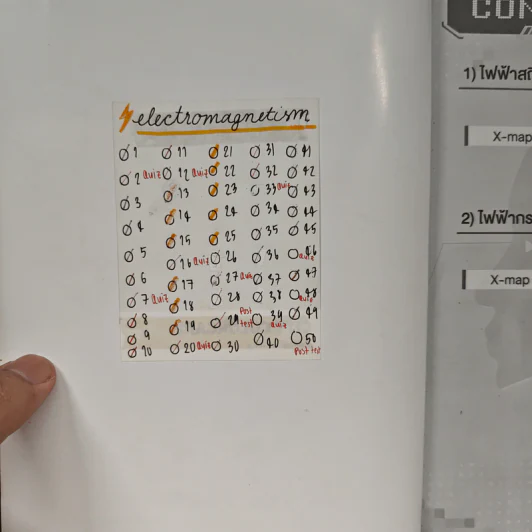 electromagnetism
1 11 21 31 41
2 Quiz 12 Quiz 22 32 42
3 13 23 33 Quiz 43
4 14 24 34 44
5 15 25 35 45
6 16 Quiz 26 36 46 Quiz
7 Quiz 17 27 Quiz 37 47
8 18 28 38 48 Quiz
9 19 29 Post test 39 Quiz 49
10 20 Quiz 30 40 50 Post test
CON
1) ไฟฟ้าสถิ
X-map
2) ไฟฟ้ากร
X-map